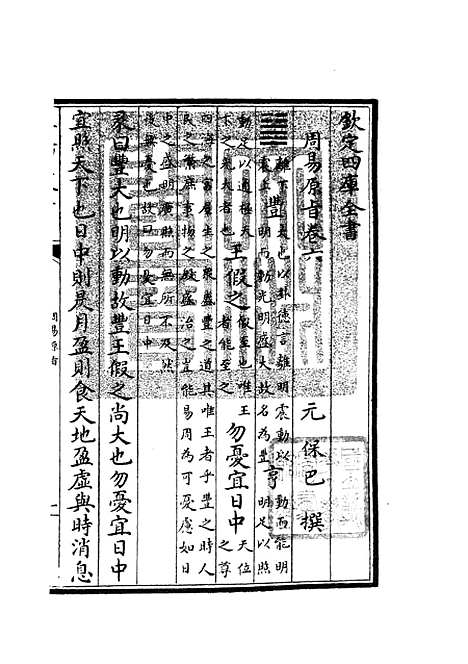 欽定四庫全書
周易原旨卷六
元 保巴 撰
䷶
離下
震上
豐
盛也以卦德言離明震動以
明而動光明盛大故名為豐
亨
動而能明
明足以照
動足以通極天
下之光大者也
王假之
假至也唯王
者能至之
勿憂宜日中
天位
之尊
四海之富廣生之衆盛豐之道其唯王者乎豐之時人
民之繁庶事物之殷盛治之宜能易周為可憂慮如日
中之盛明廣照而無所不及然
後無憂也故曰勿憂宜日中
彖曰豐大也明以動故豐王假之尚大也勿憂宜日中
宜照天下也日中則昃月盈則食天地盈虛與時消息
周易原旨